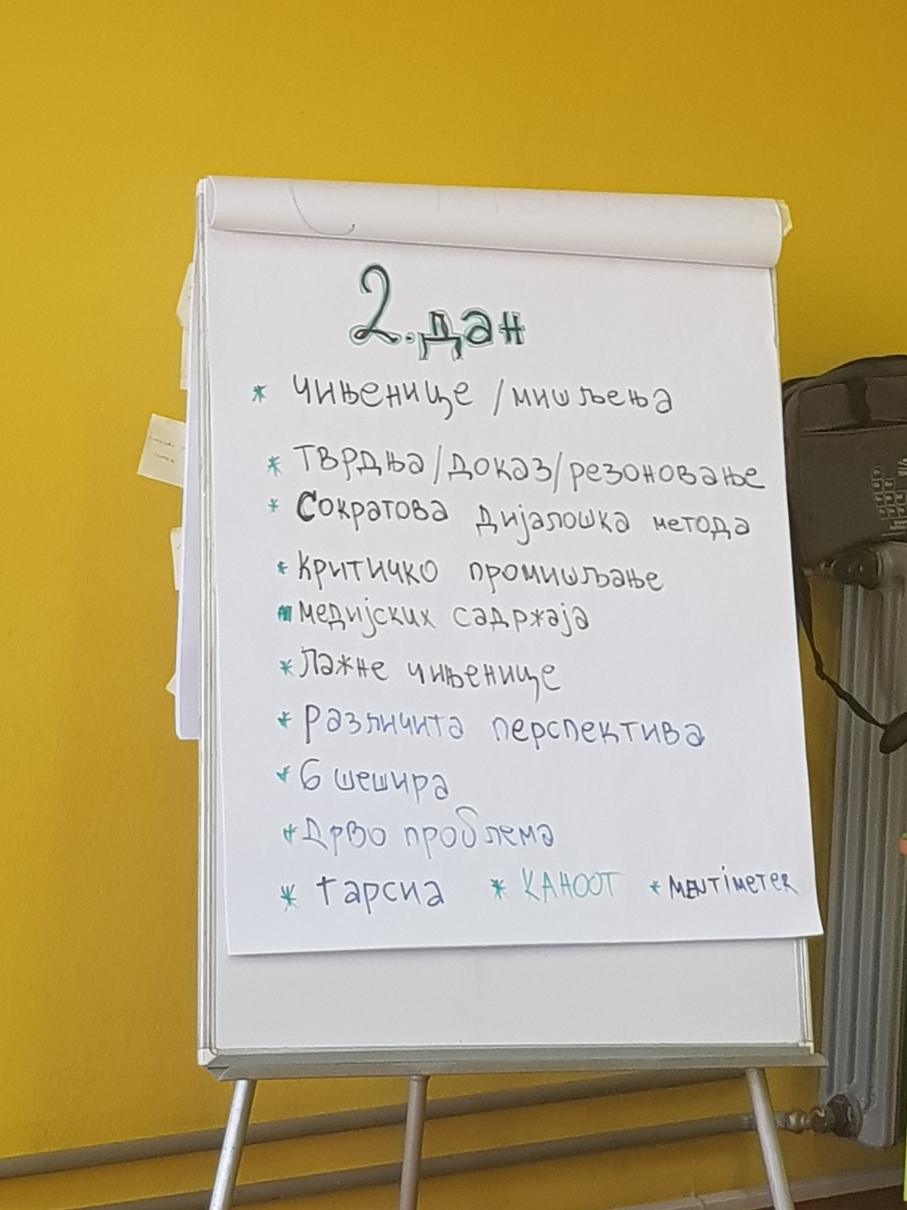 2. дан
* чињенице / мишљења
* Тврдња/доказ/резоновање
* Сократова дијалошка метода
* критичко промишљање
медијских садржаја
* Лажне чињенице
* Различита перспектива
* 6 шешира
* Дрво проблема
* тарсиа * КАНООТ * MENTIMETER